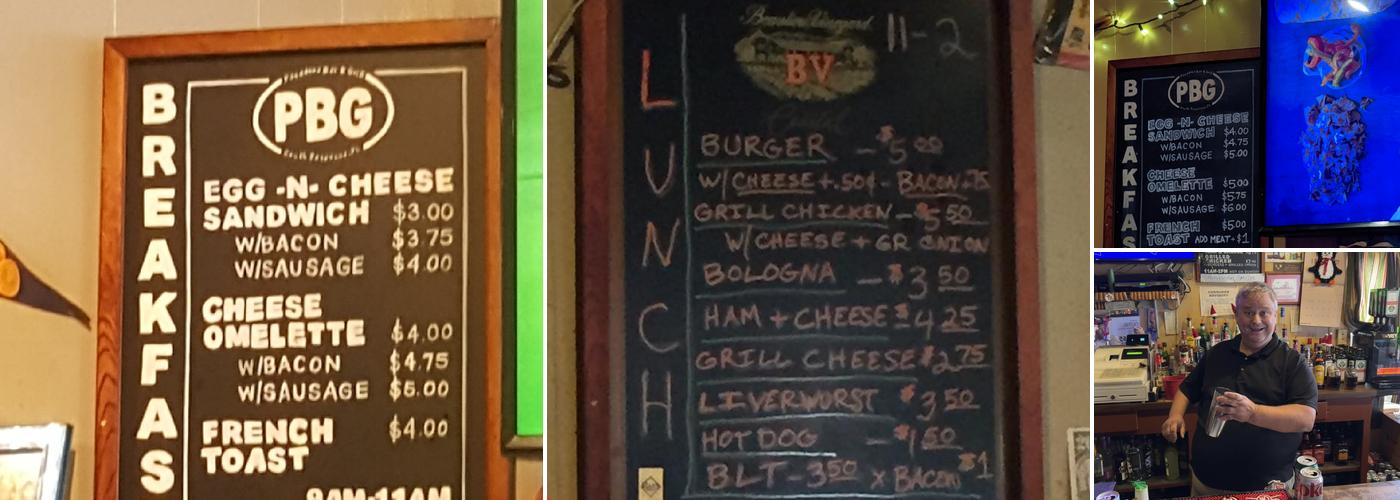 PBG
BREAKFAS
EGG -N- CHEESE
SANDWICH $3.00
W/BACON $3.75
W/SAUSAGE $4.00
CHEESE
OMELETTE $4.00
W/BACON $4.75
W/SAUSAGE $5.00
FRENCH $4.00
TOAST
9AM-11AM
BV
11-2
LUNCH
BURGER - $5.00
W/ CHEESE + .50¢ - BACON .75
GRILL CHICKEN - $5.50
W/ CHEESE + GR ONION
BOLOGNA - $3.50
HAM + CHEESE $4.25
GRILL CHEESE $2.75
LIVERWURST $3.50
HOT DOG - $1.50
BLT - 3.50 X BACON $1
PBG
BREAKFAS
EGG -N- CHEESE
SANDWICH $4.00
W/BACON $4.75
W/SAUSAGE $5.00
CHEESE
OMELETTE $5.00
W/BACON $5.75
W/SAUSAGE $6.00
FRENCH $5.00
TOAST ADD MEAT +$1
GRILLED
CHICKEN
11AM-2PM